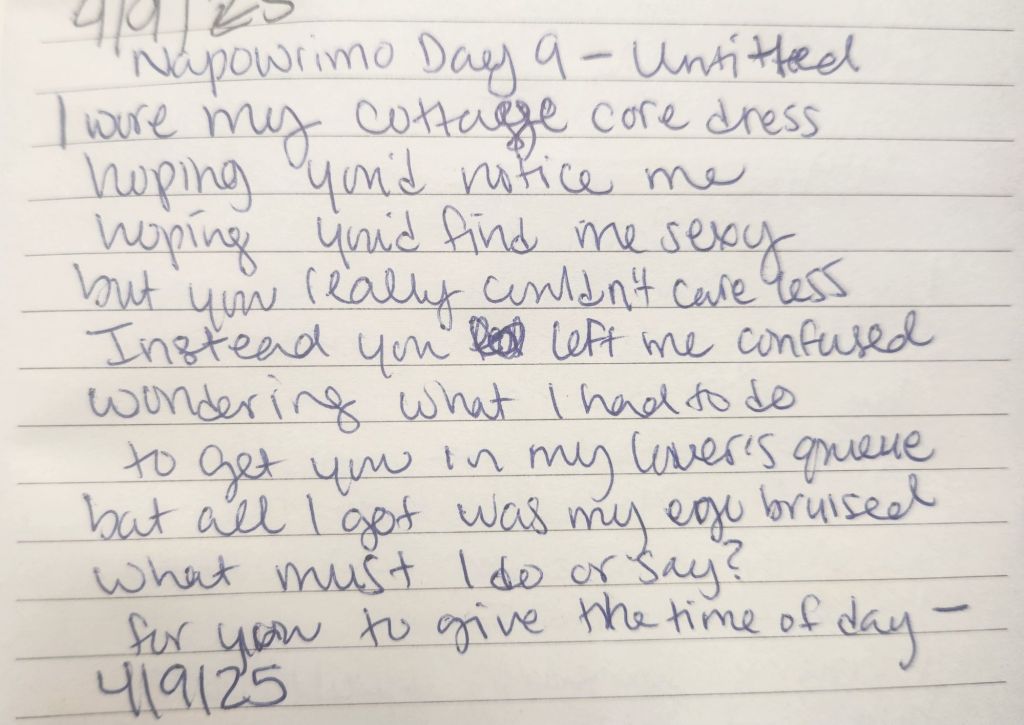 4/9/25
Napowrimo Day 9 – Untitled
I wore my cottage core dress
hoping you'd notice me
hoping you'd find me sexy
but you really couldn't care less
Instead you left me confused
wondering what I had to do
to get you in my lover's queue
but all I got was my ego bruised
what must I do or say?
for you to give the time of day –
4/9/25